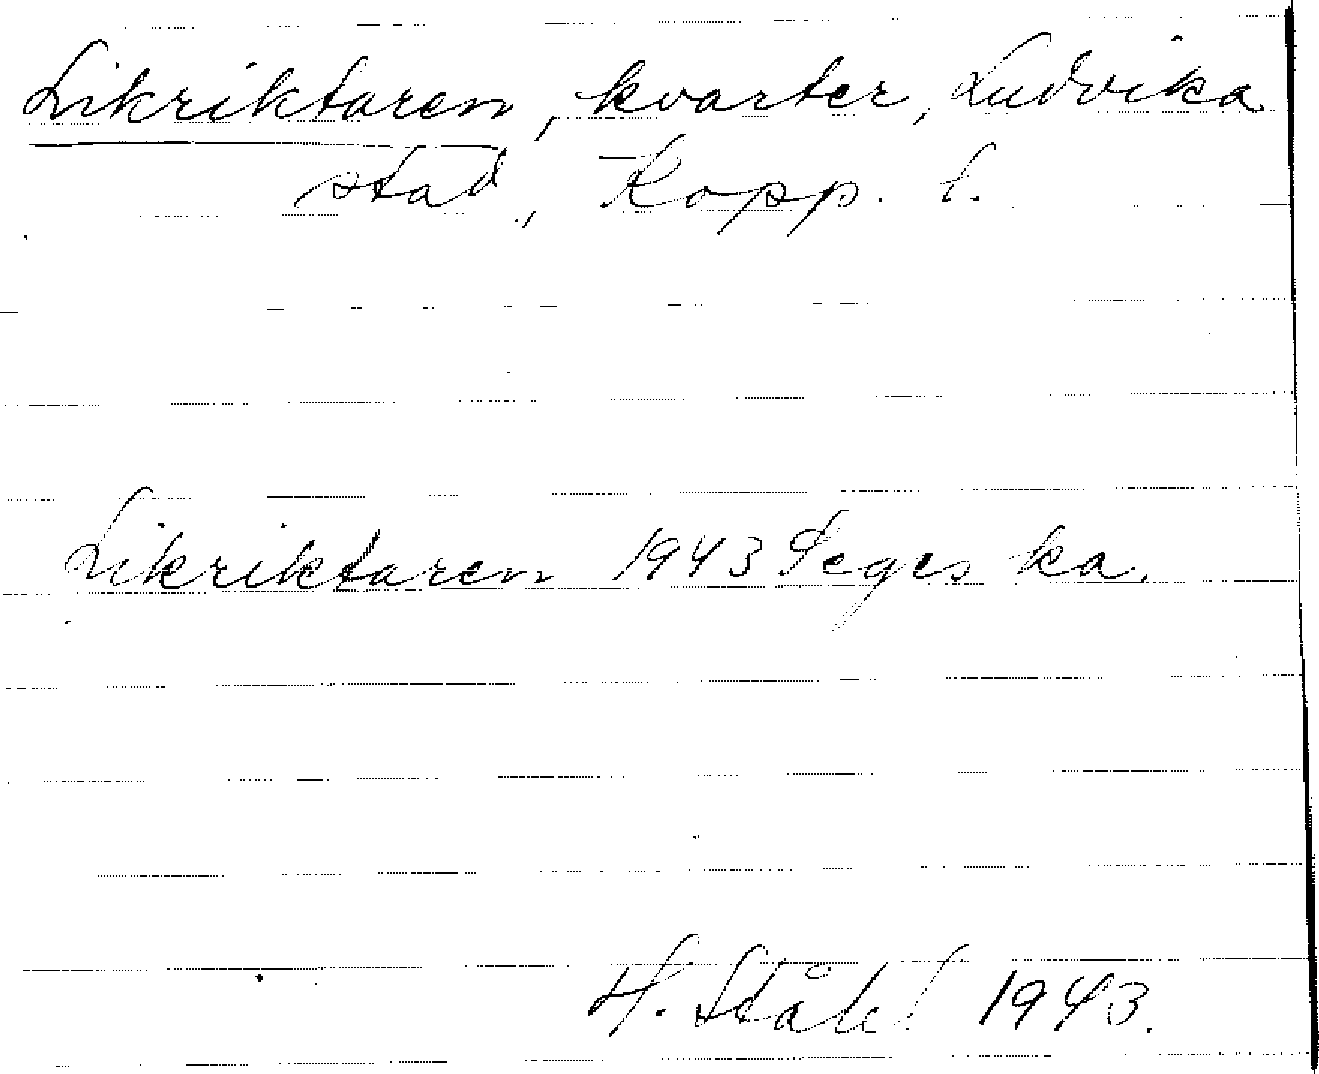 Likriktaren, kvarter, Ludvika
stad, Kopp. l.
Likriktaren 1943 Seges ka.
H. Ståhl 1943.